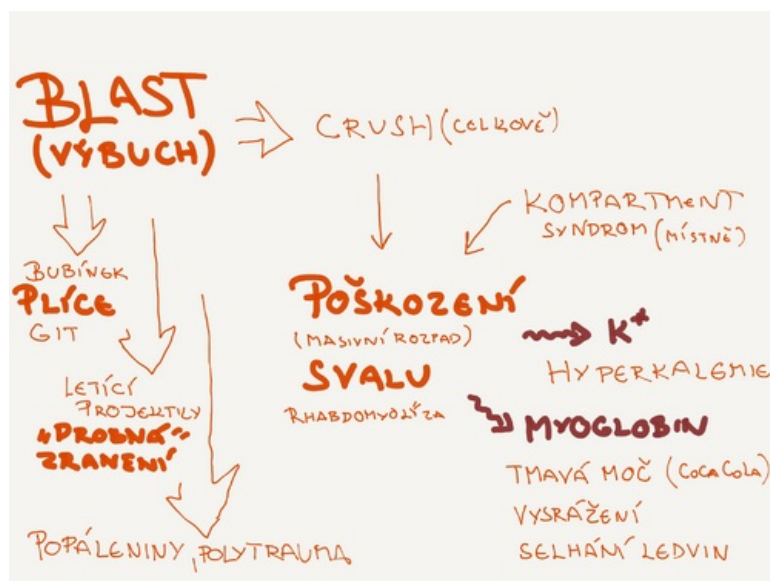 BLAST
(VÝBUCH)
CRUSH (CELKOVĚ)
KOMPARTMENT
SYNDROM (MÍSTNĚ)
BUBÍNEK
PLÍCE
GIT
LETÍCÍ
PROJEKTILY
"DROBNÁ"
ZRANENÍ
POPÁLENINY, POLYTRAUMA
POŠKOZENÍ
(MASIVNÍ ROZPAD)
SVALU
RHABDOMYOLÝZA
K+
HYPERKALEMIE
MYOGLOBIN
TMAVÁ MOČ (COCACOLA)
VYSRÁŽENÍ
SELHÁNÍ LEDVIN